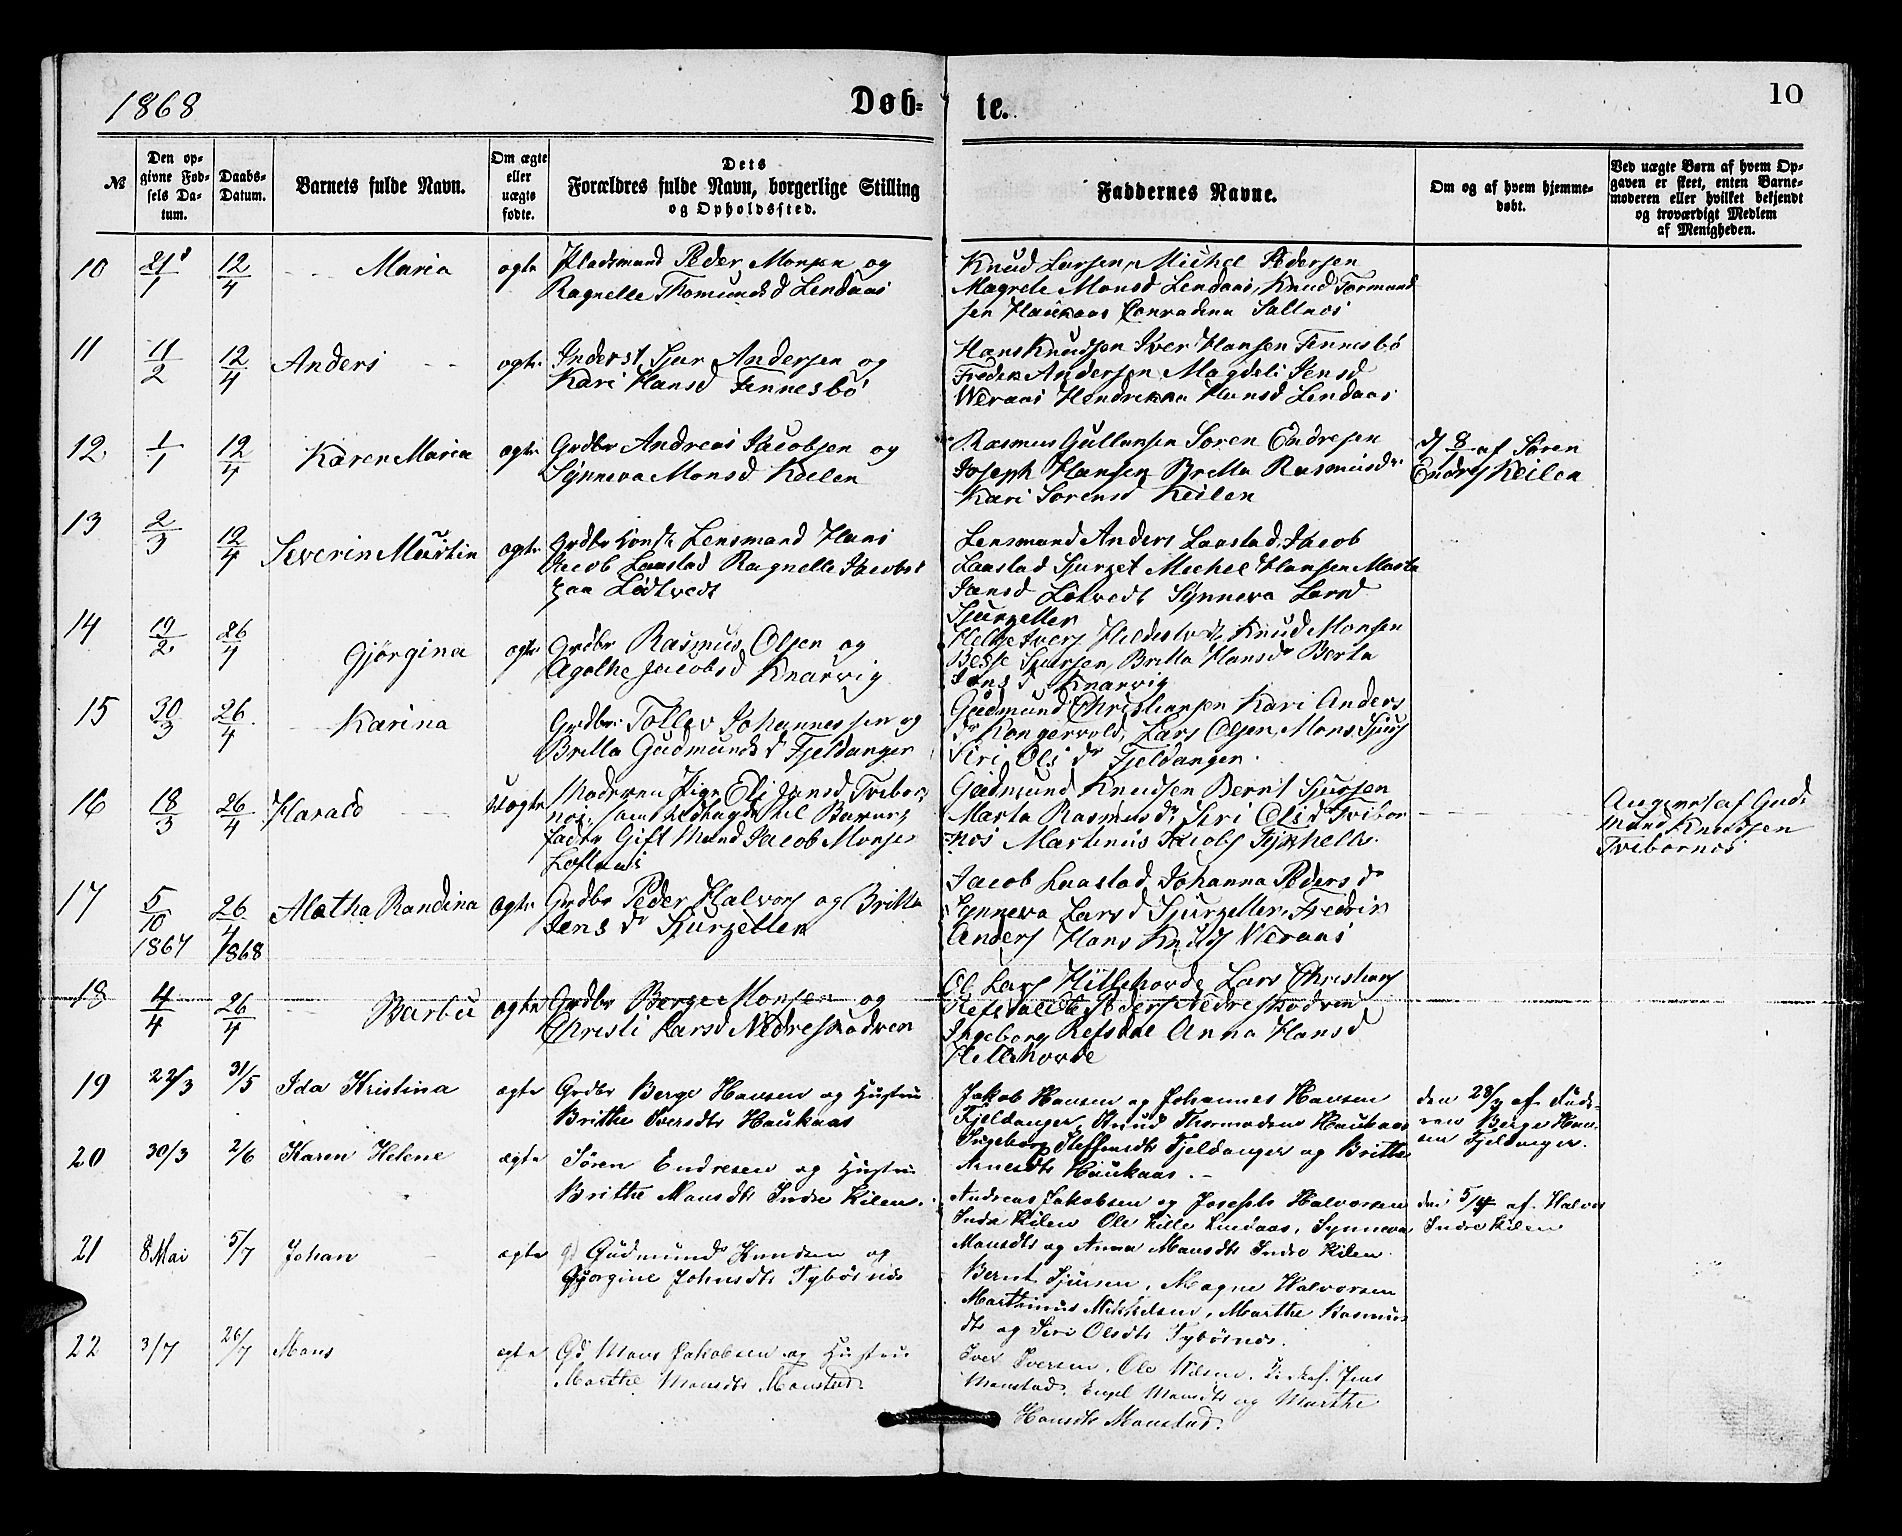 1868 Døb- te. 10
№
Den op-
givne Fød-
sels Da-
tum.
Daabs-
Datum.
Barnets fulde Navn.
Om ægte
eller
uægte
fødte.
Dets
Forældres fulde Navn, borgerlige Stilling
og Opholdssted.
Faddernes Navne.
Om og af hvem hjemme-
døbt.
Ved uægte Børn af hvem Op-
gaven er skeet, enten Barne-
moderen eller hvilket bekjendt
og troværdigt Medlem
af Menigheden.
10 21/1 12/4 Maria ægte
Pladsmand Peder Monsen og
Ragnelle Thomundsd Lendaas
Knud Larsen, Michel Pedersen
Magrete Monsd Lendaas, Knud Tormund
sen Haukaas Conradina Saltnæs
11 11/2 12/4 Anders ægte
Inderst Sjur Andersen og
Kari Hansd Fennesbø
Hans Knudsen Iver Hansen Fennesbø
Fredrik Andersen Magdeli Jensd
Weraas Hendrikka Hansd Lendaas
12 1/1 12/4 Karen Maria ægte
Grdbr Andreas Jacobsen og
Synneva Monsd Keilen
Rasmus Gullaksen Søren Endresen
Joseph Hansen Britta Rasmusdr
Kari Sørensd Keilen
d 8/1 af Søren
Endres Keilen
13 2/3 12/4 Severin Martin ægte
Grdbr Konst Lensmand Hans
Jacob Laastad Ragnelle Jacobsd
paa Lødtvedt
Lensmand Anders Laastad, Jacob
Laastad Sjurset Michel Hansen Marta
Hansd Løtvedt Synneva Larsd
Sjursetter
14 19/2 26/4 Gjørgina ægte
Grdbr Rasmus Olsen og
Agathe Jacobsd Knarvig
Helge Ivers Knud Monsen
Sjursen Britta Hansdr Berta
Jensd Knarvig
15 30/3 26/4 Karina
Grdbr Tollev Johannessen og
Britta Gudmundsd Fjeldanger
Gudmund Christiansen Kari Anders
dr Kongevold, Lars Olsen, Mons Sjurs
Siri Olsdr Fjeldanger
16 18/3 26/4 Harald Uægte
Moderen Pige Eli Jensd Tvibor
nøs, Barnes
fader Gift Mand Jacob Monsen
Gudmund Knudsen Bernt Sjursen
Marta Rasmusdr, Siri Olsd Tvibor
nøs Martinus Jacobs
Angivet af Gud
mund Knudsen
Tvibornøs
17 5/10 1867 26/4 1868 Alætha Randina Ægte
Grdbr Peder Halvors og Britta
Jensdr Sjursetter
Jacob Laastad Johanna Pedersdr
Synneva Larsd Sjursetter, Fredrik
Anders Hans Knuds Weraas
18 4/4 26/4 Barbu ægte
Grdbr Børge Monsen og
Christi Larsd Nedreskodven
Ol Lars Hillehorde Lars Christians
Refsdal Ole Peders Nedreskodven
Ingeborg Refsdal Anna Hansd
Hellehorde
19 22/3 31/5 Ida Kristina ægte
Grdbr Berge Hansen og Hustru
Brithe Iversdtr Haukaas
Jakob Hansen og Johannes Hansen
Fjeldanger, Knud Thormodsen Haukaas
Ingeborg Steffensdtr Fjeldanger og Brithe
Arnesdtr Haukaas.
den 28/3 af Fade-
ren Berge Han-
sen Fjeldanger.
20 30/3 2/6 Karen Helene ægte
Søren Endresen og Hustru
Brithe Monsdtr Indre Kilen.
Andreas Jakobsen og Joseph Halvorsen
Indre Kilen Ole Lille Lindaas, Synneva
Monsdtr og Anna Monsdtr Indre Kilen
den 5/4 af Halvor
Indre Kilen
21 8 Mai 5/7 Johan ægte
Gudmund Knudsen og
Gjørgine Johnsdtr Tybørnøs
Bernt Sjursen, Magne Halvorsen
Marthinus Mikkelsen, Marthe Rasmus-
dtr og Siri Olsdtr Tybørnøs.
22 3/7 26/7 Mons ægte
Gd Mons Jakobsen og Hustru
Marthe Monsdtr Monstad.
Iver Iversen, Ole Nilsen, Jens
Monstad, Engel Monsdtr og Marthe
Hansdtr Monstad.